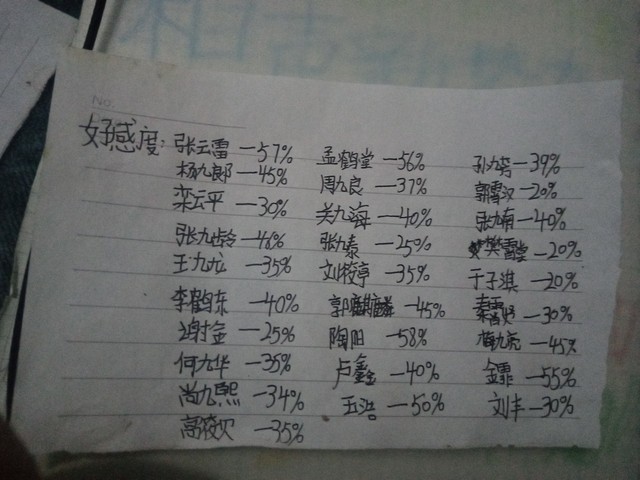 No.
好感度: 张云雷 —57% 孟鹤堂 —56% 孙九芳 —39%
杨九郎 —45% 周九良 —37% 郭霄汉 —20%
栾云平 —30% 关九海 —40% 张九南 —40%
张九龄 —46% 张九泰 —25% 樊霄堂 —20%
王九龙 —35% 刘筱亭 —35% 于子淇 —20%
李鹤东 —40% 郭麒麟 —45% 秦霄贤 —30%
谢金 —25% 陶阳 —58% 梅九亮 —45%
何九华 —35% 卢鑫 —40% 金霏 —55%
尚九熙 —34% 玉浩 —50% 刘丰 —30%
高筱贝 —35%